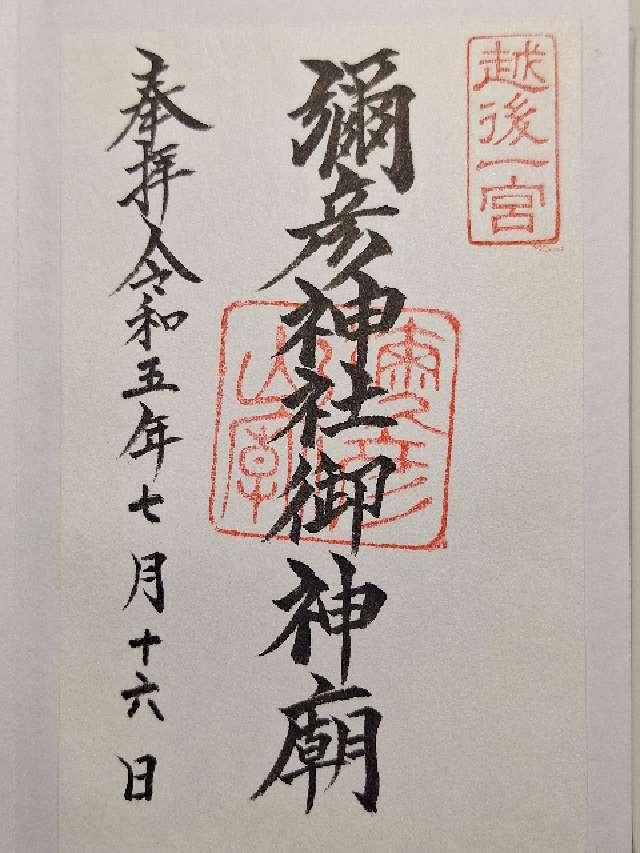 越後一宮
彌彦神社御神廟
奉拝令和五年七月十六日